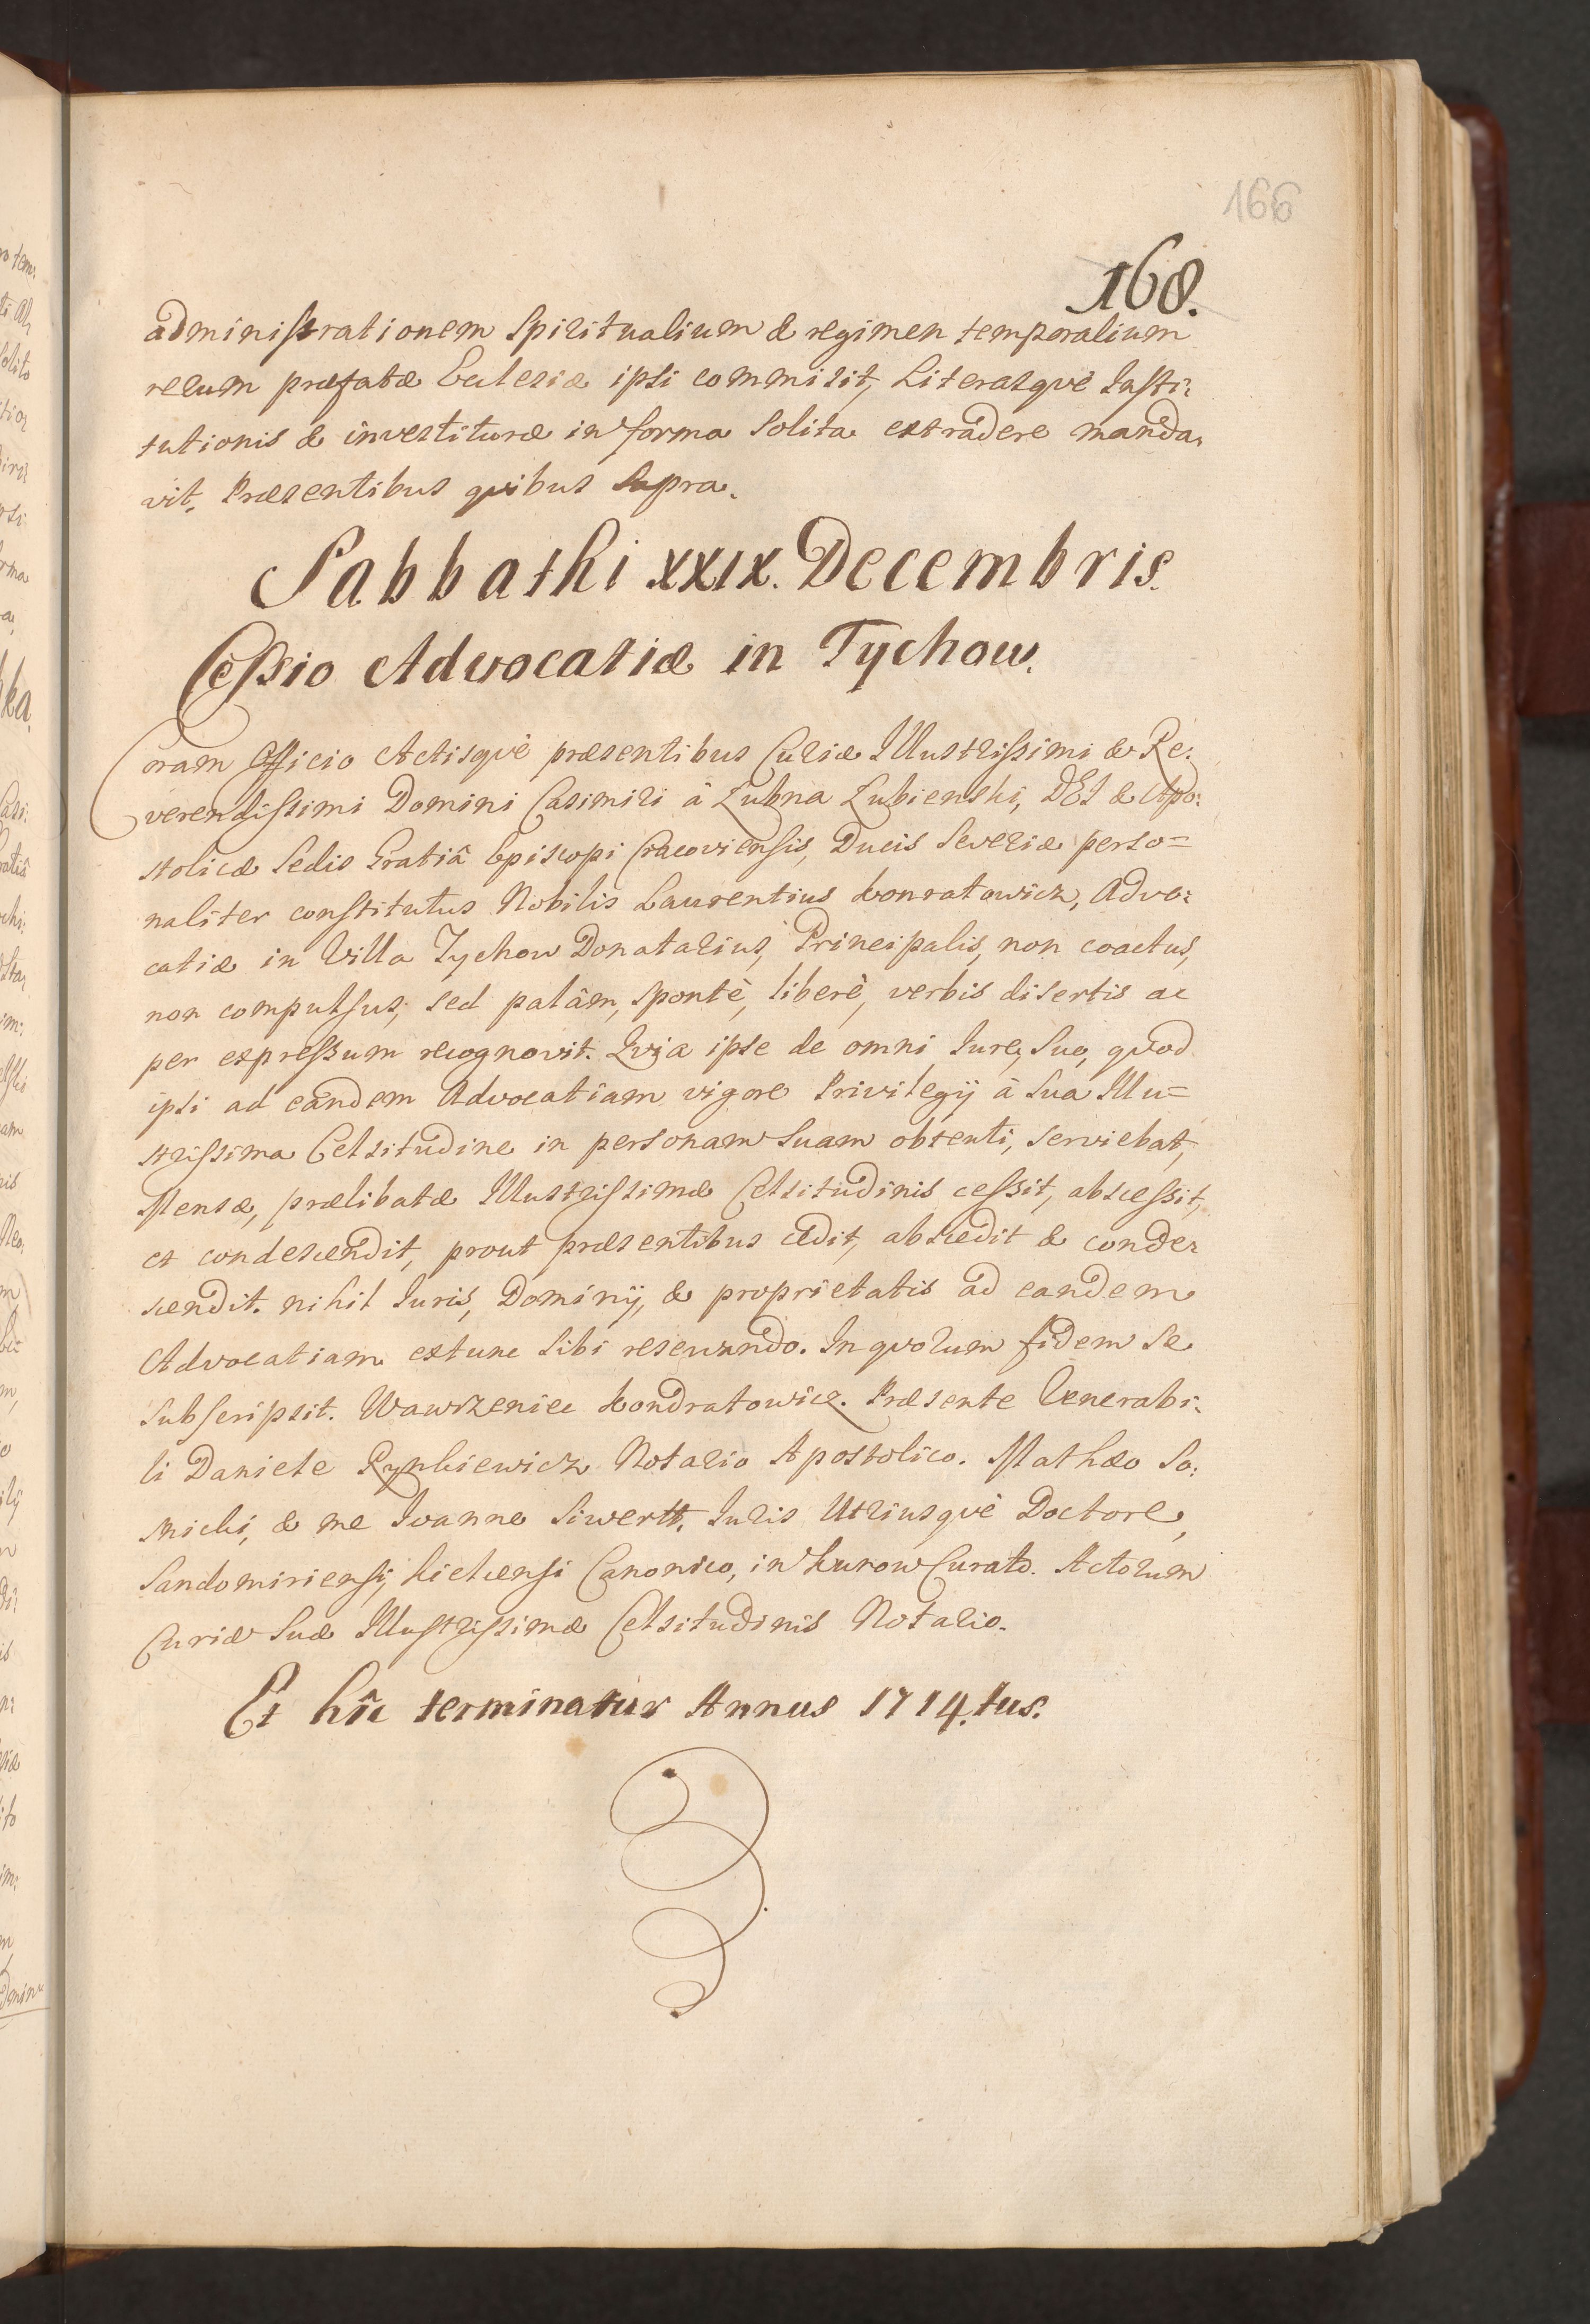 166
168.
administrationem Spiritualium & regimen temporalium
rerum præfatæ Ecclesiæ ipsi commisit, Literasqvè Insti:
tutionis & investituræ in forma solita extradere manda,
vit, Præsentibus qvibus supra.
Sabbathi XXIX. Decembris.
Cessio Advocatiæ in Tychow.
Coram Officio Actisqvè præsentibus Curiæ Illustrissimi & Re:
verendissimi Domini Casimiri â Łubna Łubienski, DEI & Apo:
stolicæ Sedis Gratiâ Episcopi Cracoviensis, Ducis Severiæ perso=
naliter constitutus Nobilis Laurentius Konratowicz, Advo:
catiæ in Villa Tychow Donatarius, Principalis, non coactus,
non compulsus, sed palâm, spontè, liberè, verbis disertis ac
per expressum recognovit. Qvia ipse de omni Jure, Suo, qvod
ipsi ad eandem Advocatiam vigore Privilegij â Sua Illu=
strissima Celsitudine in personam Suam obtenti, serviebat,
Mensæ, prælibatæ Illustrissimæ Celsitudinis cessit, abscessit,
et condescendit, prout præsentibus cedit, abscedit & conde:
scendit. nihil Juris, Dominij, & proprietatis ad eandem
Advocatiam extunc Sibi reservando. In qvorum fidem Se
Subscripsit. Wawrzeniec Kondratowicz. Præsente Venerabi:
li Daniele Rynkiewicz Notario Apostolico. Mathæo So:
snicki, & me Joanne Siwertt. Juris Utriusqvè Doctore,
Sandomiriensi, Kielcensi Canonico, in Kurow Curato. Actorum
Curiæ Suæ Illustrissimæ Celsitudinis Notario.
Et hîc terminatur Annus 1714.tus.